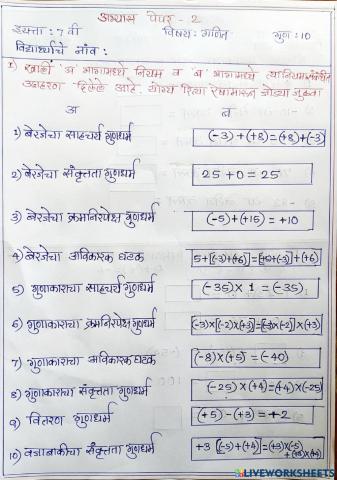 अभ्यास पेपर - 2
इयत्ता : 7 वी विषय : गणित गुण : 10
विद्यार्थ्याचे नांव :
1) खाली 'अ' भागामध्ये नियम व 'ब' भागामध्ये त्या नियमासंबंधीत
उदाहरण दिलेले आहे. योग्य रेषा मारून जोड्या जुळवा
अ ब
1) बेरजेचा साहचर्य गुणधर्म (-3)+(+8)=(+8)+(-3)
2) बेरजेचा संवृत्तता गुणधर्म 25+0=25
3) बेरजेचा क्रमनिरपेक्ष गुणधर्म (-5)+(+15)=+10
4) बेरजेचा अविकारक घटक 5+[(-3)+(+6)]=[(+5)+(-3)]+(+6)
5) गुणाकाराचा साहचर्य गुणधर्म (-35)×1=(-35)
6) गुणाकाराचा क्रमनिरपेक्ष गुणधर्म (-3)×[(-2)×(+3)]=[(-3)×(-2)]×(+3)
7) गुणाकाराचा अविकारक घटक (-8)×(+5)=(-40)
8) गुणाकाराचा संवृत्तता गुणधर्म (-25)×(+4)=(+4)×(-25)
9) वितरण गुणधर्म (+5)-(+3)=+2
10) वजाबाकीचा संवृत्तता गुणधर्म +3[(-5)+(+4)]=(+3)×(-5)
+(+3)×(+4)
LIVEWORKSHEETS